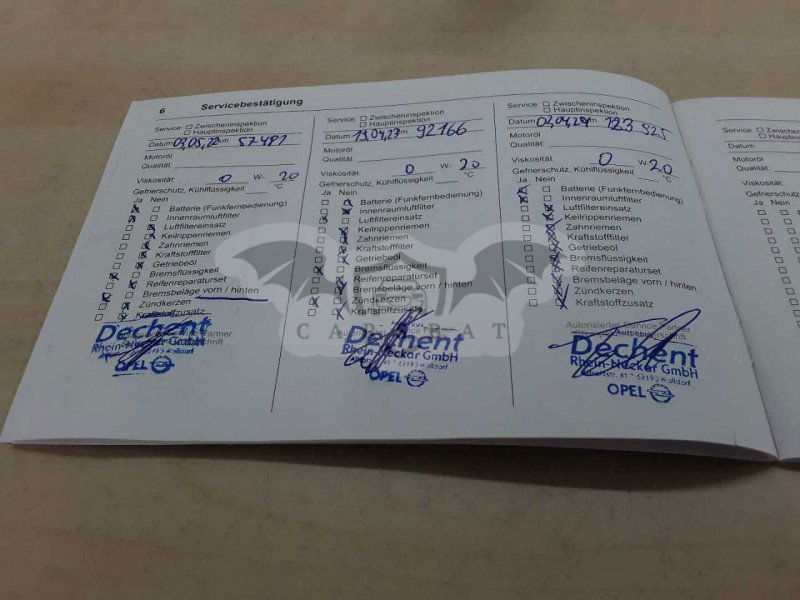 6 Servicebestätigung
Service: Zwischeninspektion
Hauptinspektion
Datum 03.05.22 km 57497
Motoröl
Qualität:
Viskosität: 0 W- 20
Gefrierschutz, Kühlflüssigkeit °C
Ja Nein
Batterie (Funkfernbedienung)
Innenraumluftfilter
Luftfiltereinsatz
Keilrippenriemen
Zahnriemen
Kraftstofffilter
Getriebeöl
Bremsflüssigkeit
Reifenreparaturset
Bremsbeläge vorn / hinten
Zündkerzen
Kraftstoffzusatz
Dechent
Rhein-Neckar GmbH
OPEL
Service: Zwischeninspektion
Hauptinspektion
Datum 19.04.23 km 92166
Motoröl
Qualität:
Viskosität: 0 W- 20
Gefrierschutz, Kühlflüssigkeit °C
Ja Nein
Batterie (Funkfernbedienung)
Innenraumluftfilter
Luftfiltereinsatz
Keilrippenriemen
Zahnriemen
Kraftstofffilter
Getriebeöl
Bremsflüssigkeit
Reifenreparaturset
Bremsbeläge vorn / hinten
Zündkerzen
Kraftstoffzusatz
Dechent
Rhein-Neckar GmbH
41 * 69190 Walldorf
OPEL
Service: Zwischeninspektion
Hauptinspektion
Datum 02.04.24 km 123 925
Motoröl
Qualität:
Viskosität: 0 W- 20
Gefrierschutz, Kühlflüssigkeit °C
Ja Nein
Batterie (Funkfernbedienung)
Innenraumluftfilter
Luftfiltereinsatz
Keilrippenriemen
Zahnriemen
Kraftstofffilter
Getriebeöl
Bremsflüssigkeit
Reifenreparaturset
Bremsbeläge vorn / hinten
Zündkerzen
Kraftstoffzusatz
Autorisierter Service Partner
Dechent
Rhein-Neckar GmbH
41 * 69190 Walldorf
OPEL
Service:
Datum
Motoröl
Qualität:
Viskosität:
Gefriersch
Ja Nein